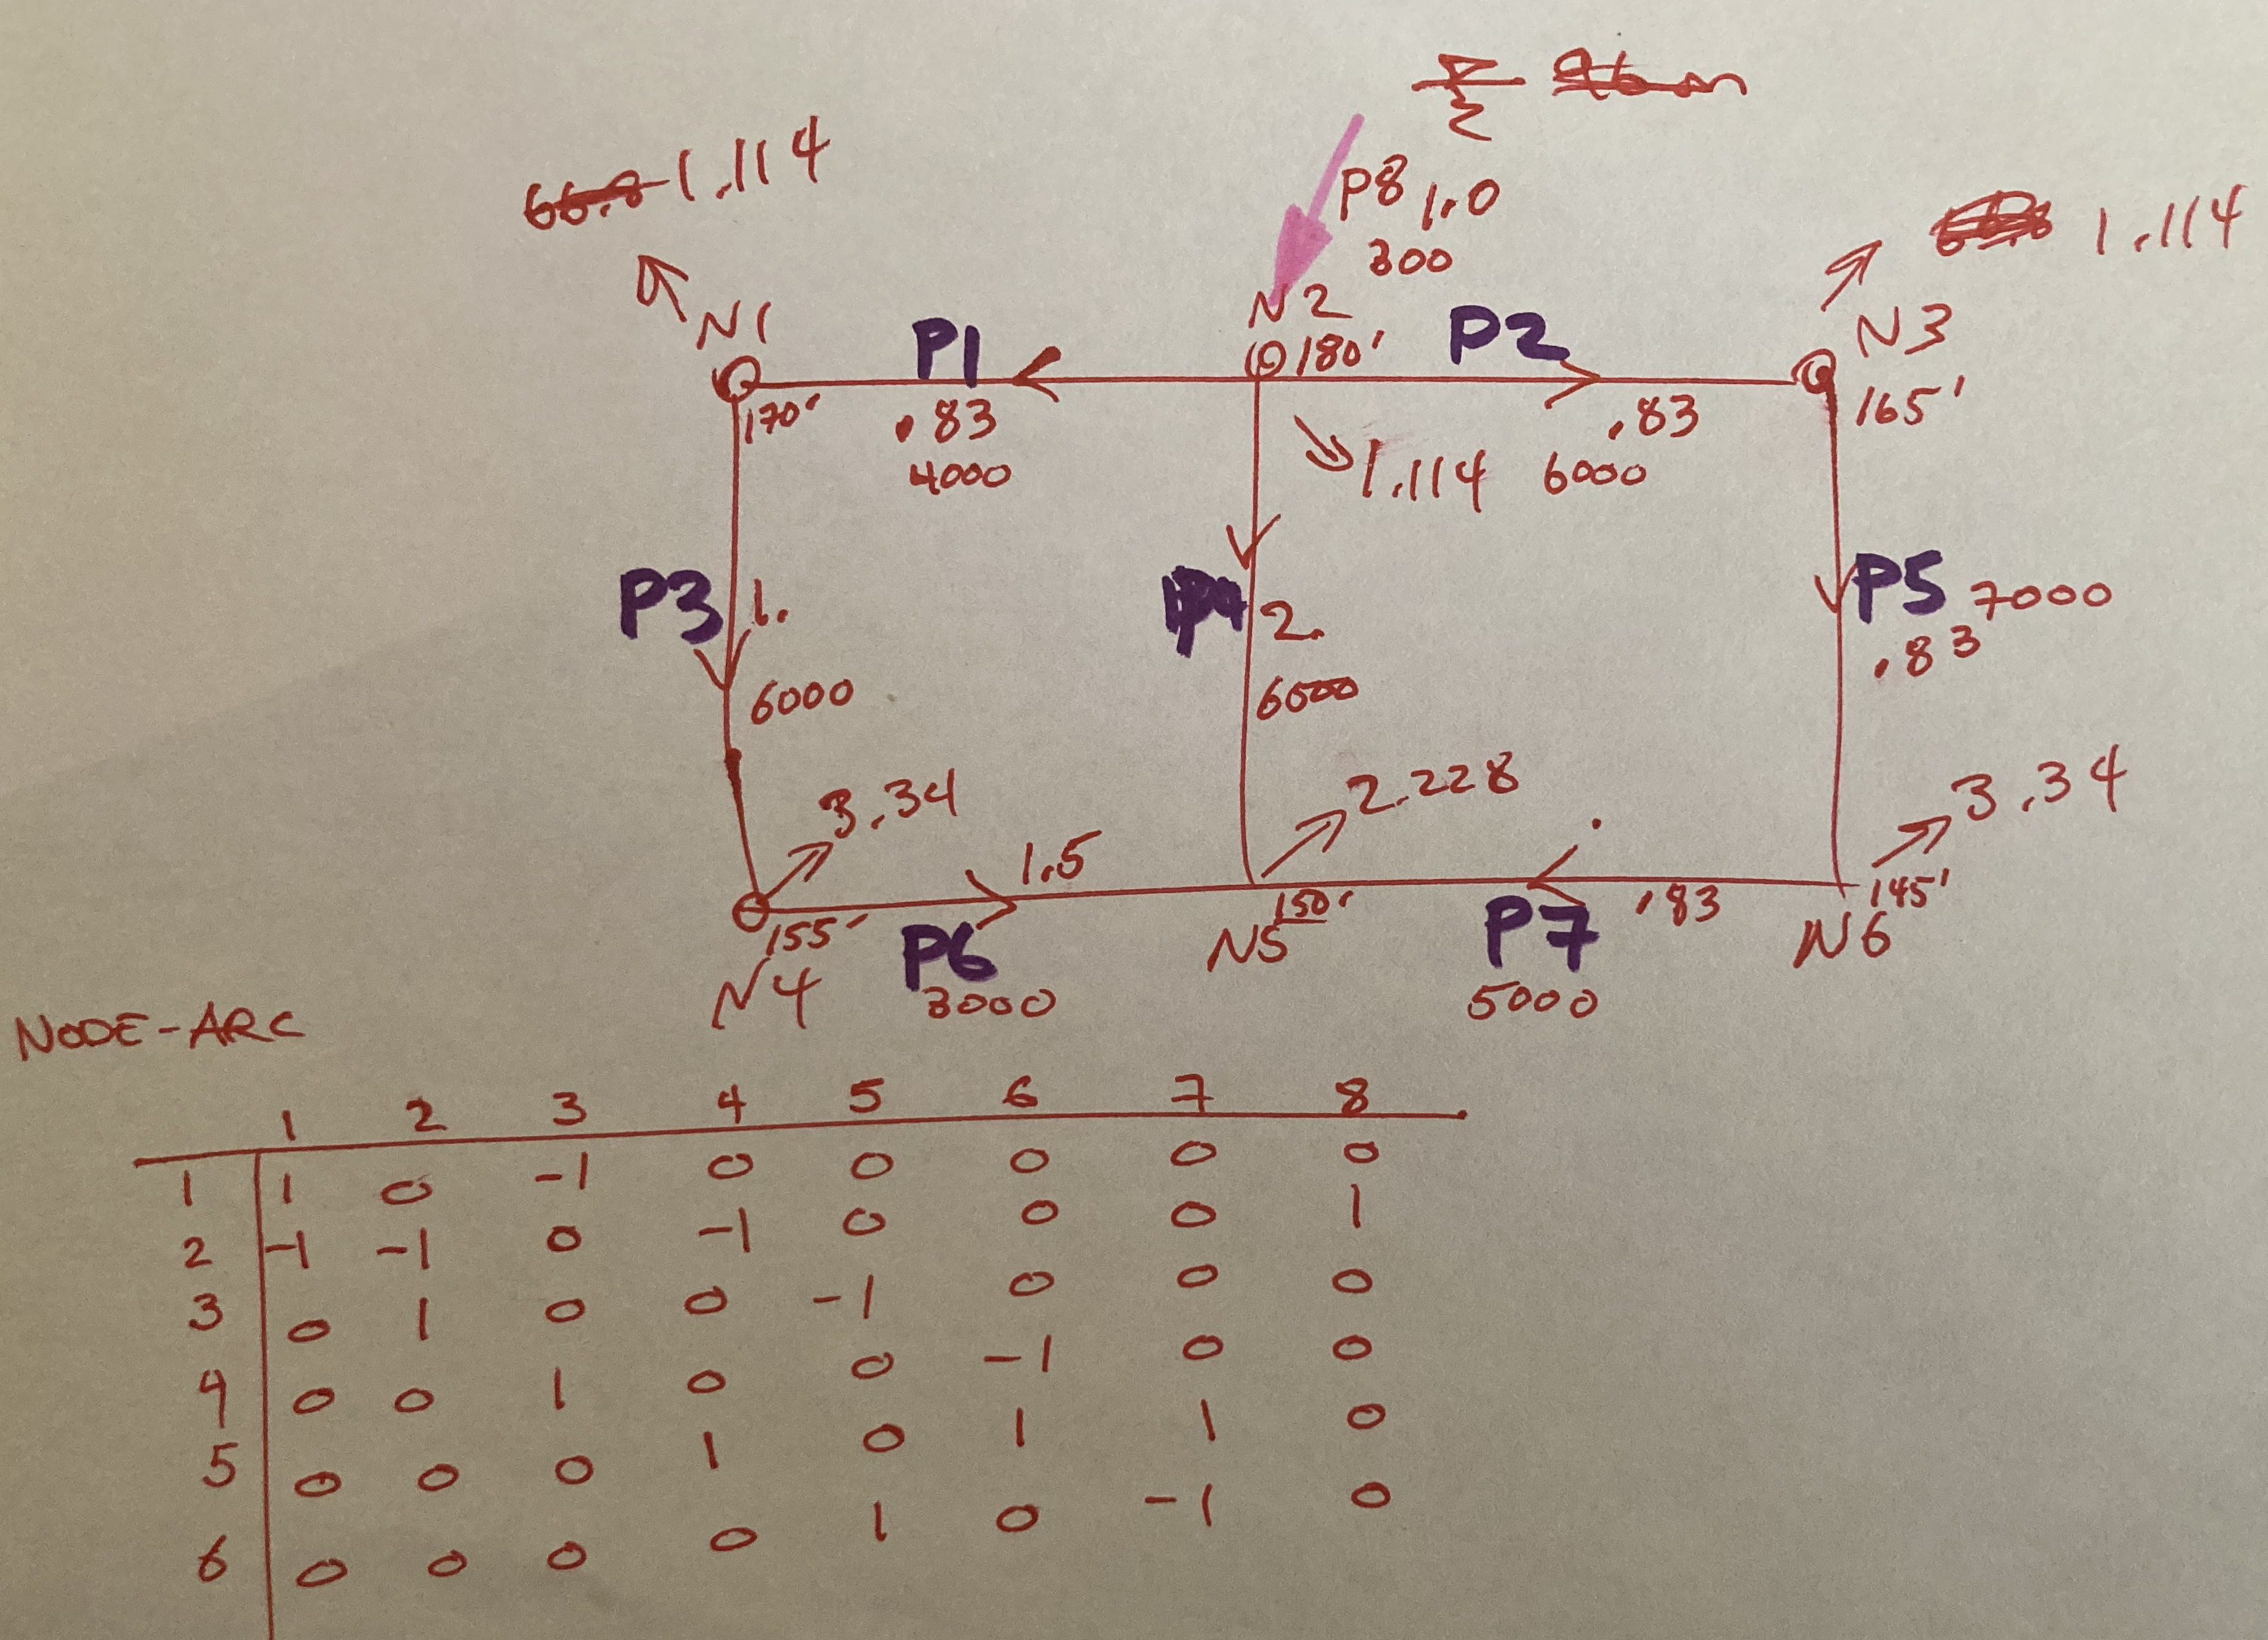 1.114
P8 1.0
300
1.114
N1
N2
N3
P1
180'
P2
170'
.83
.83
165'
4000
1.114
6000
P3
1.
P4
2.
P5
7000
.83
6000
6000
3.34
2.228
3.34
1.5
155'
150'
.83
145'
N4
P6
N5
P7
N6
3000
5000
NODE-ARC
1 2 3 4 5 6 7 8
1 1 0 -1 0 0 0 0 0
2 -1 -1 0 -1 0 0 0 1
3 0 1 0 0 -1 0 0 0
4 0 0 1 0 0 -1 0 0
5 0 0 0 1 0 1 1 0
6 0 0 0 0 1 0 -1 0